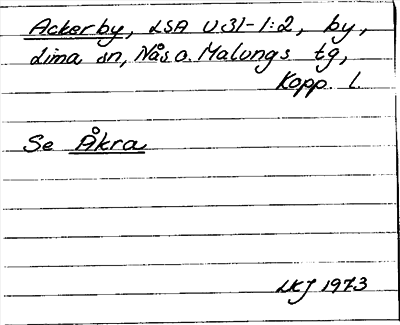 Ackerby, LSA U31-1:2, by,
Lima sn, Nås o. Malungs tg,
Kopp. l.
Se Åkra
LKJ 1973